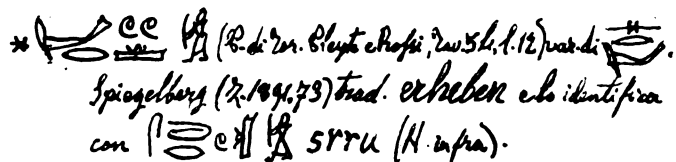 * (P. di Tor. Pleyte e Rossi, Tav. 56, l. 12) var. di .
Spiegelberg (Z. 1891, 79) trad. erheben e lo identifica
con srru (V. infra).